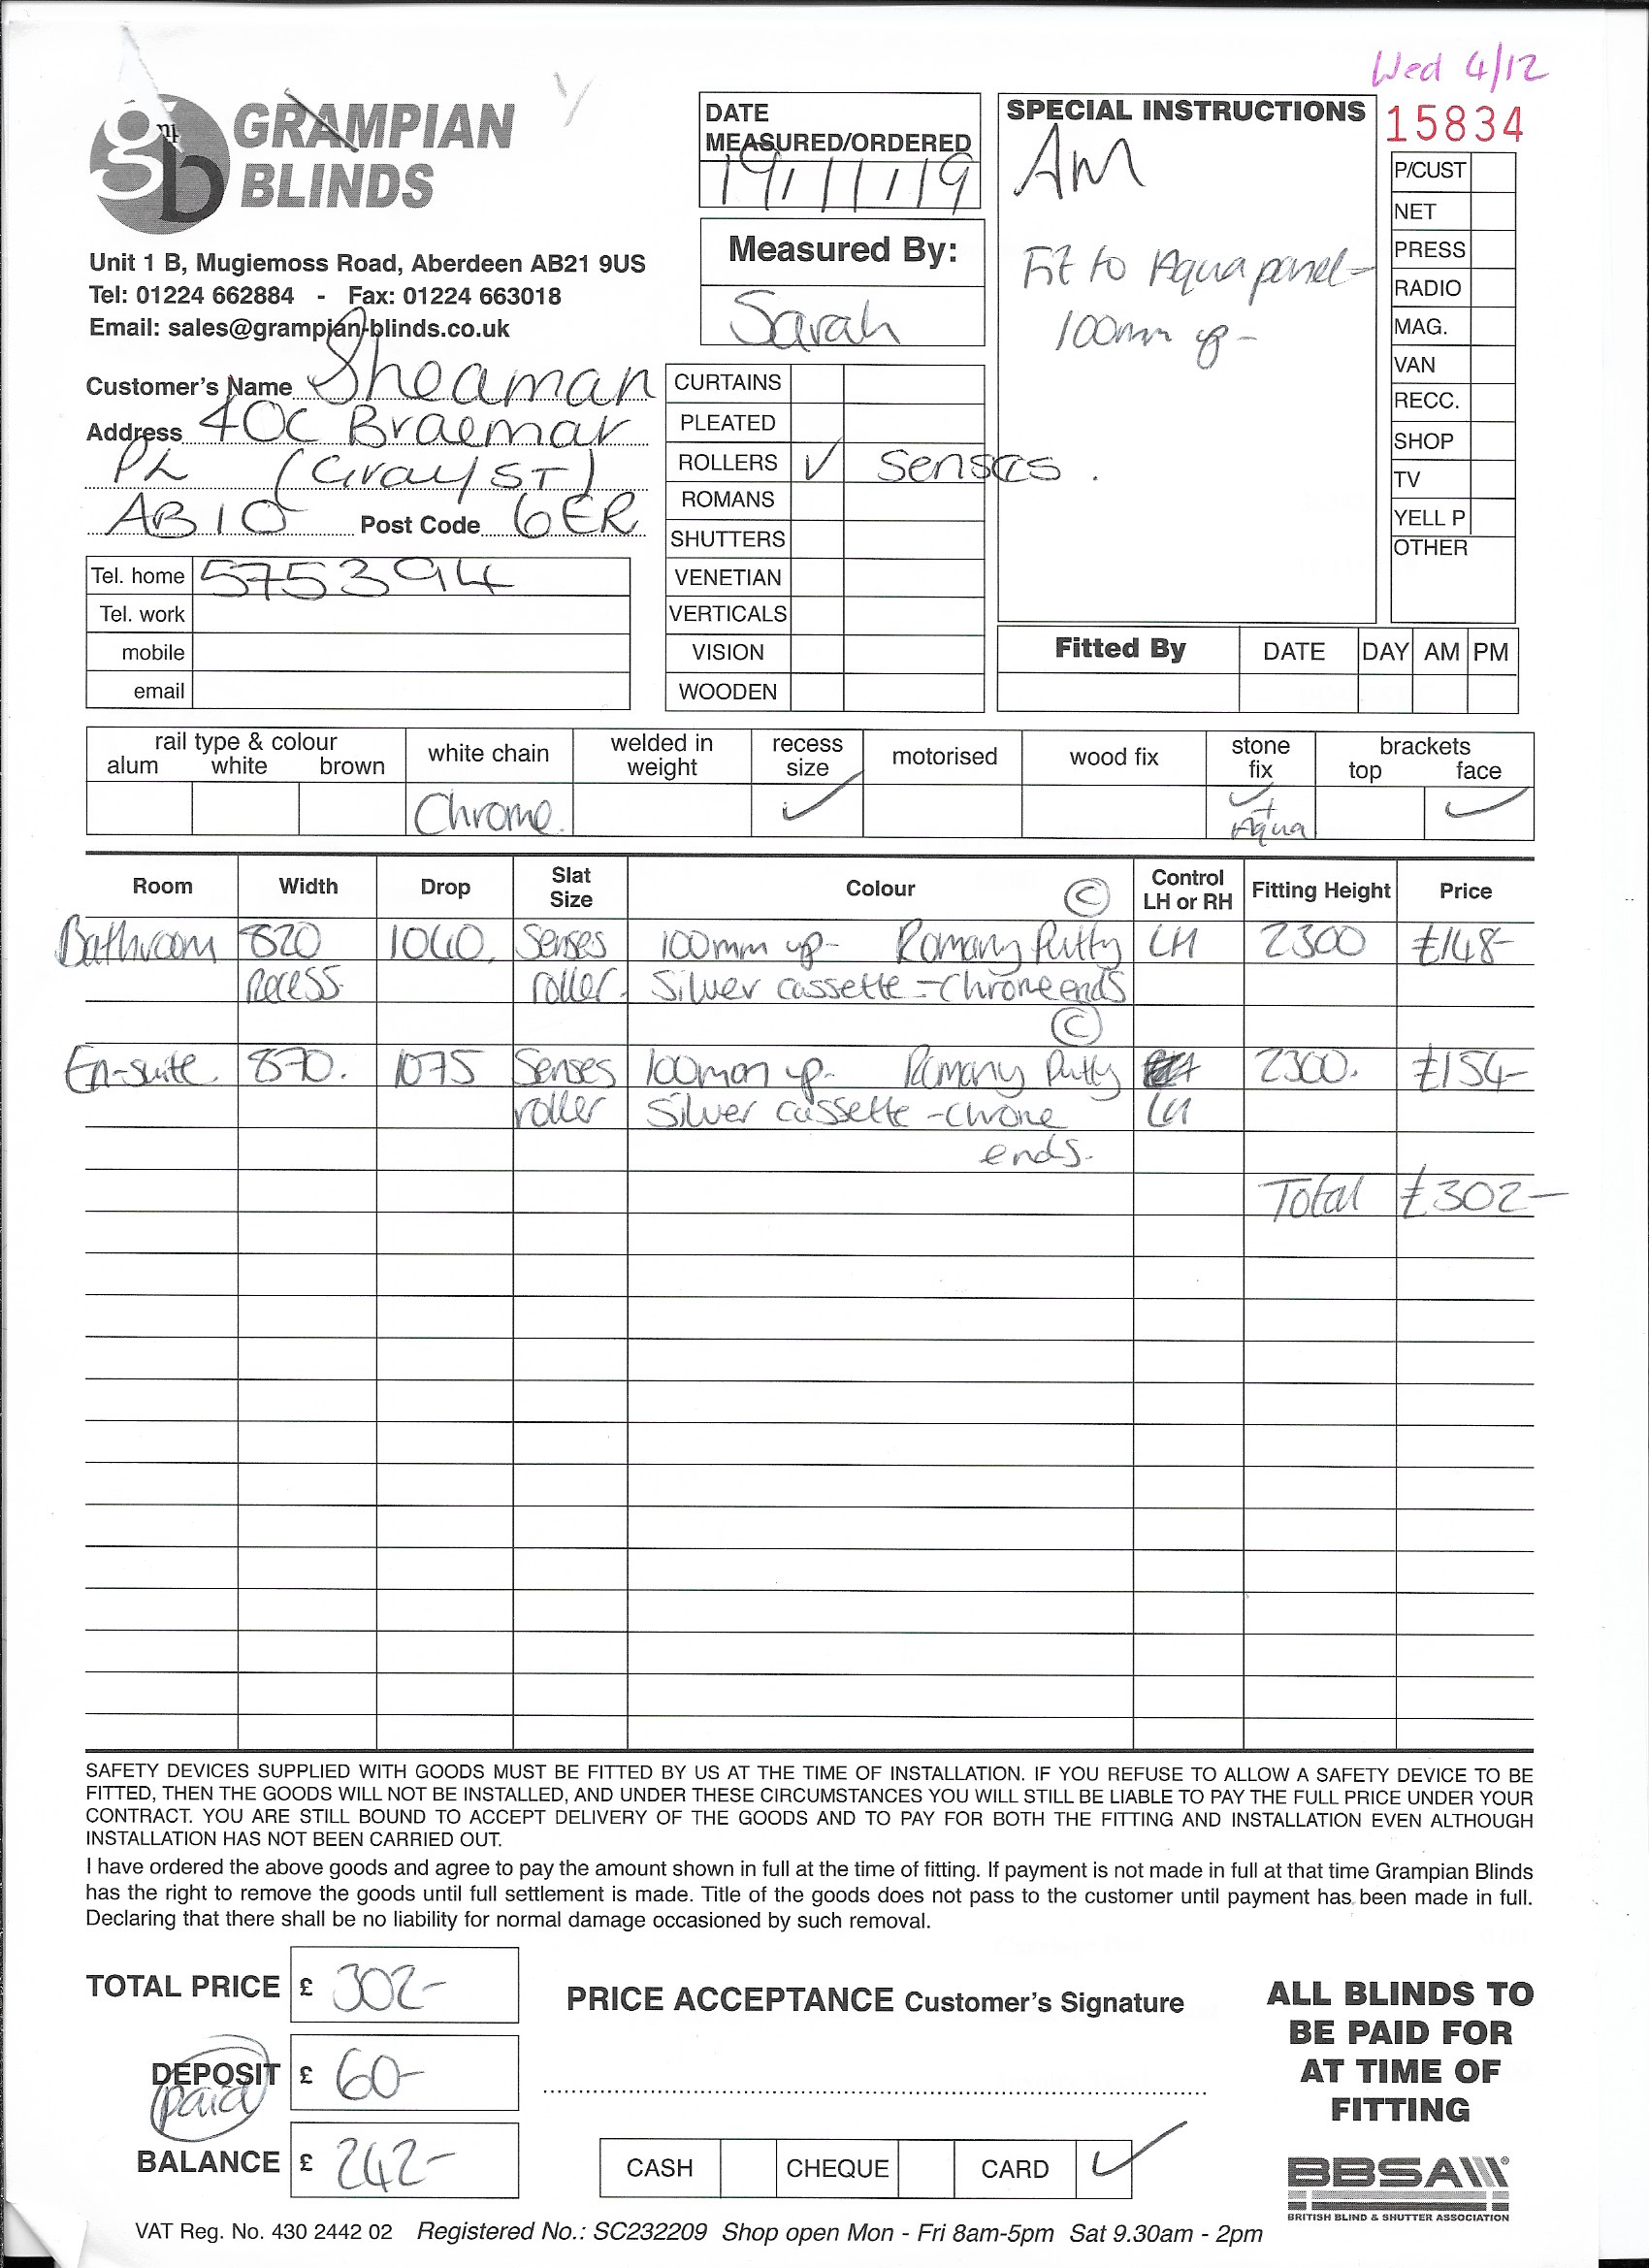 Wed 4/12
gb GRAMPIAN
BLINDS
Unit 1 B, Mugiemoss Road, Aberdeen AB21 9US
Tel: 01224 662884 - Fax: 01224 663018
Email: sales@grampian-blinds.co.uk
Customer's Name Sheaman
Address 40C Braemar
PL (Gray ST)
AB10 Post Code 6ER
Tel. home 575394
Tel. work
mobile
email
DATE
MEASURED/ORDERED
19/11/19
Measured By:
Sarah
CURTAINS
PLEATED
ROLLERS ✓ senses.
ROMANS
SHUTTERS
VENETIAN
VERTICALS
VISION
WOODEN
SPECIAL INSTRUCTIONS
AM
Fit to Aqua panel-
100mm up-
15834
P/CUST
NET
PRESS
RADIO
MAG.
VAN
RECC.
SHOP
TV
YELL P
OTHER
Fitted By DATE DAY AM PM
rail type & colour
alum white brown
white chain
Chrome.
welded in
weight
recess
size
✓
motorised
wood fix
stone
fix
✓ +
Aqua
brackets
top face
✓
Room Width Drop Slat Size Colour © Control LH or RH Fitting Height Price
Bathroom 820 1040. Senses 100mm up- Romany Putty LH 2300 £148-
Recess roller. Silver cassette - Chrome ends
©
En-suite 870. 1075 Senses 100mm up- Romany Putty 2300. £154-
roller Silver cassette - chrome LH
ends.
Total £302-
SAFETY DEVICES SUPPLIED WITH GOODS MUST BE FITTED BY US AT THE TIME OF INSTALLATION. IF YOU REFUSE TO ALLOW A SAFETY DEVICE TO BE
FITTED, THEN THE GOODS WILL NOT BE INSTALLED, AND UNDER THESE CIRCUMSTANCES YOU WILL STILL BE LIABLE TO PAY THE FULL PRICE UNDER YOUR
CONTRACT. YOU ARE STILL BOUND TO ACCEPT DELIVERY OF THE GOODS AND TO PAY FOR BOTH THE FITTING AND INSTALLATION EVEN ALTHOUGH
INSTALLATION HAS NOT BEEN CARRIED OUT.
I have ordered the above goods and agree to pay the amount shown in full at the time of fitting. If payment is not made in full at that time Grampian Blinds
has the right to remove the goods until full settlement is made. Title of the goods does not pass to the customer until payment has been made in full.
Declaring that there shall be no liability for normal damage occasioned by such removal.
TOTAL PRICE £ 302-
DEPOSIT £ 60-
paid
BALANCE £ 242-
PRICE ACCEPTANCE Customer's Signature
CASH CHEQUE CARD ✓
ALL BLINDS TO
BE PAID FOR
AT TIME OF
FITTING
BBSA
BRITISH BLIND & SHUTTER ASSOCIATION
VAT Reg. No. 430 2442 02 Registered No.: SC232209 Shop open Mon - Fri 8am-5pm Sat 9.30am - 2pm